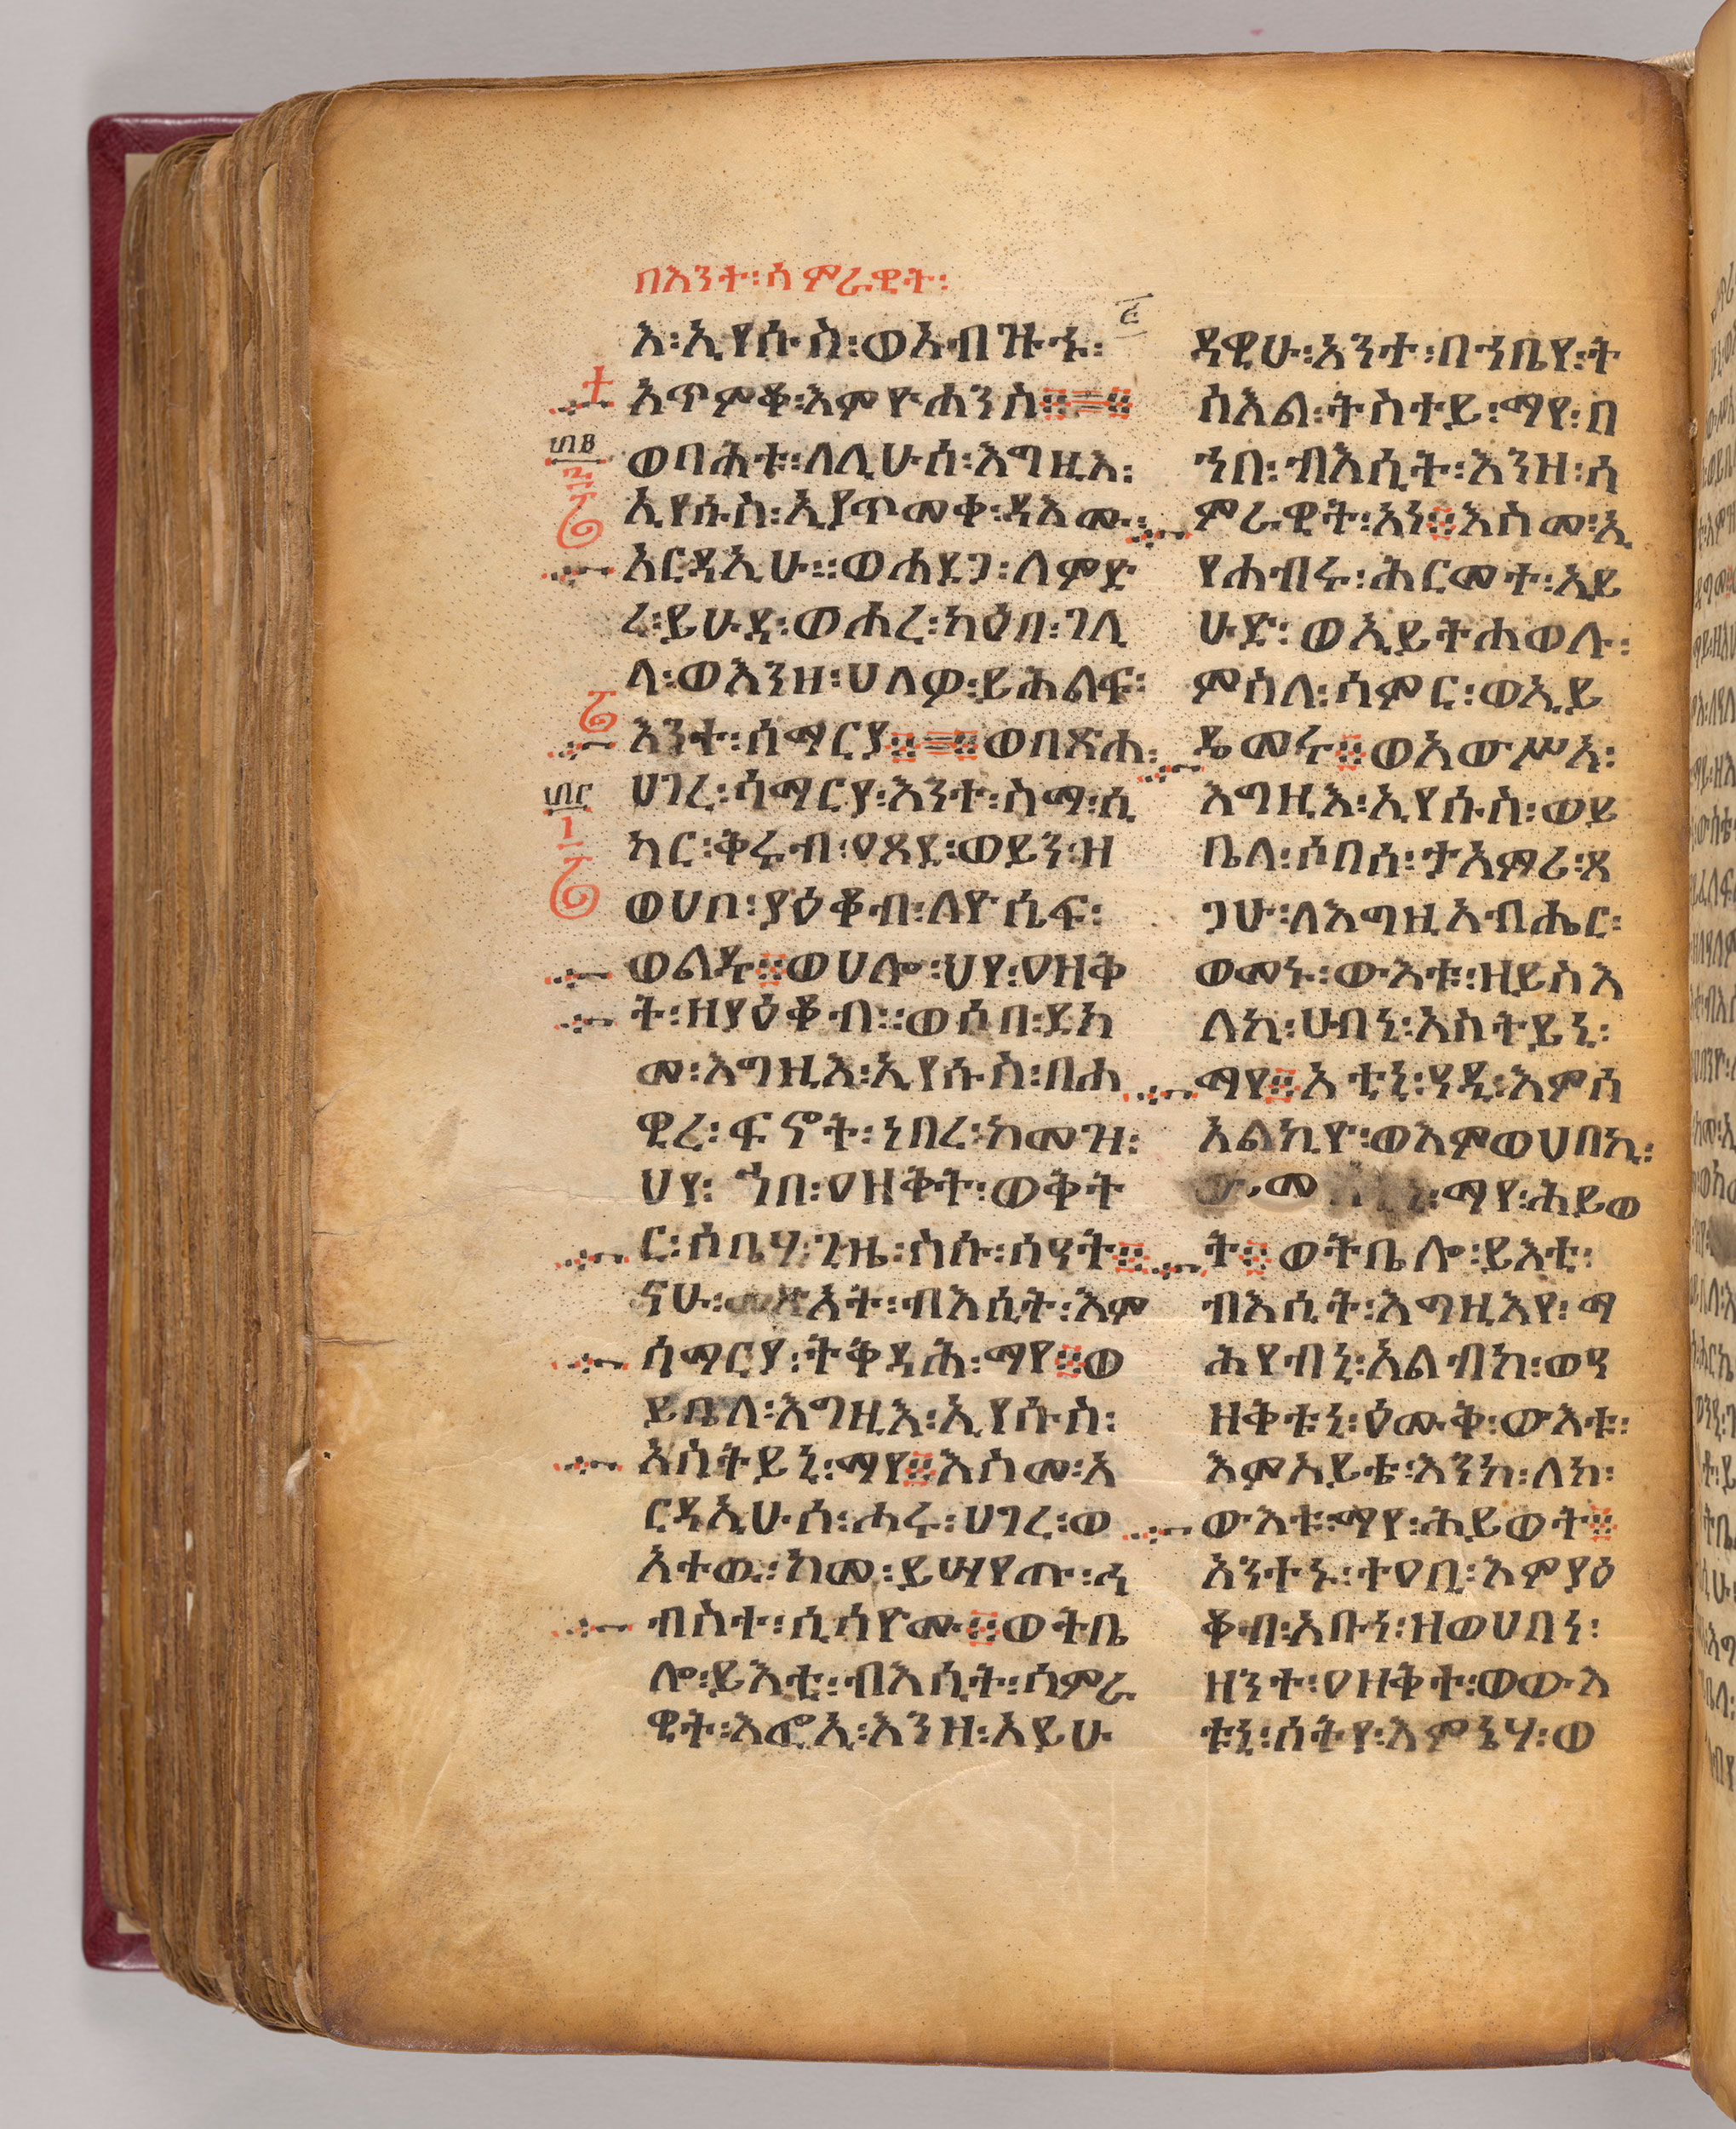 በእንተ፡ሳምራዊት፡
እ፡ኢየሱስ፡ወአብዝኁ፡
አጥምቆ፡እምዮሐንስ፨
ወባሕቱ፡ለሊሁሰ፡እግዚእ፡
ኢየሱስ፡ኢያጥመቀ፡ዳእሙ፡
አርዳኢሁ።ወሐደጋ፡ለምድ
ረ፡ይሁዳ፡ወሐረ፡ካዕበ፡ገሊ
ላ፡ወእንዘ፡ሀለዎ፡ይሕልፍ፡
እንተ፡ሰማርያ፨ወበጽሐ፡
ሀገረ፡ሳማርያ፡እንተ፡ስማ፡ሲ
ካር፡ቅሩብ፡ዐጸደ፡ወይን፡ዘ
ወሀቦ፡ያዕቆብ፡ለዮሴፍ፡
ወልዱ፨ወሀሎ፡ህየ፡ዐዘቅ
ት፡ዘያዕቆብ።ወሶበ፡ደክ
መ፡እግዚእ፡ኢየሱስ፡በሐ
ዊረ፡ፍኖት፡ነበረ፡ከመዝ፡
ህየ፡ኀበ፡ዐዘቅት፡ወቅት
ር፡ሶቤሃ፡ጊዜ፡ስሱ፡ሰዓት፨
ናሁ፡መጽአት፡ብእሲት፡እም
ሳማርያ፡ትቅዳሕ፡ማየ፨ወ
ይቤላ፡እግዚእ፡ኢየሱስ፡
አስትይኒ፡ማየ፨እስመ፡አ
ርዳኢሁሰ፡ሐሩ፡ሀገረ፡ወ
አተዉ፡ከመ፡ይሣየጡ፡ሎ
ብስተ፡ሲሳዮሙ፨ወትቤ
ሎ፡ይእቲ፡ብእሲት፡ሳምራ
ዊት፡እፎኢ፡እንዘ፡አይሁ
ዳዊሁ፡አንተ፡በኀቤየ፡ት
ስእል፡ትስተይ፡ማየ፡በ
ኀበ፡ብእሲት፡እንዘ፡ሳ
ምራዊት፡አነ፨እስመ፡ኢ
የሐብሩ፡ሕርመተ፡አይ
ሁድ፡ወኢይትሐወሉ፡
ምስለ፡ሳምር፡ወኢይ
ዴመሩ፨ወአውሥአ፡
እግዚእ፡ኢየሱስ፡ወይ
ቤላ፡ሶበሰ፡ታአምሪ፡ጸ
ጋሁ፡ለእግዚአብሔር፡
ወመኑ፡ውእቱ፡ዘይስእ
ለኪ፡ሀብኒ፡አስትይኒ፡
ማየ፨አንቲኒ፡ዓዲ፡እምሰ
አልኪዮ፡ወእምወሀበኪ፡
ማየ፡ሕይወ
ት፨ወትቤሎ፡ይእቲ፡
ብእሲት፡እግዚእየ፡ማ
ሕየብኒ፡አልብከ፡ወዓ
ዘቅቱኒ፡ዕሙቅ፡ውእቱ፡
እምአይቴ፡እንከ፡ለከ፡
ውእቱ፡ማየ፡ሕይወት፨
አንተኑ፡ተዐቢ፡እምያዕ
ቆብ፡አቡነ፡ዘወሀበነ፡
ዘንተ፡ዐዘቅተ፡ወውእ
ቱኒ፡ሰትየ፡እምኔሃ፡ወ